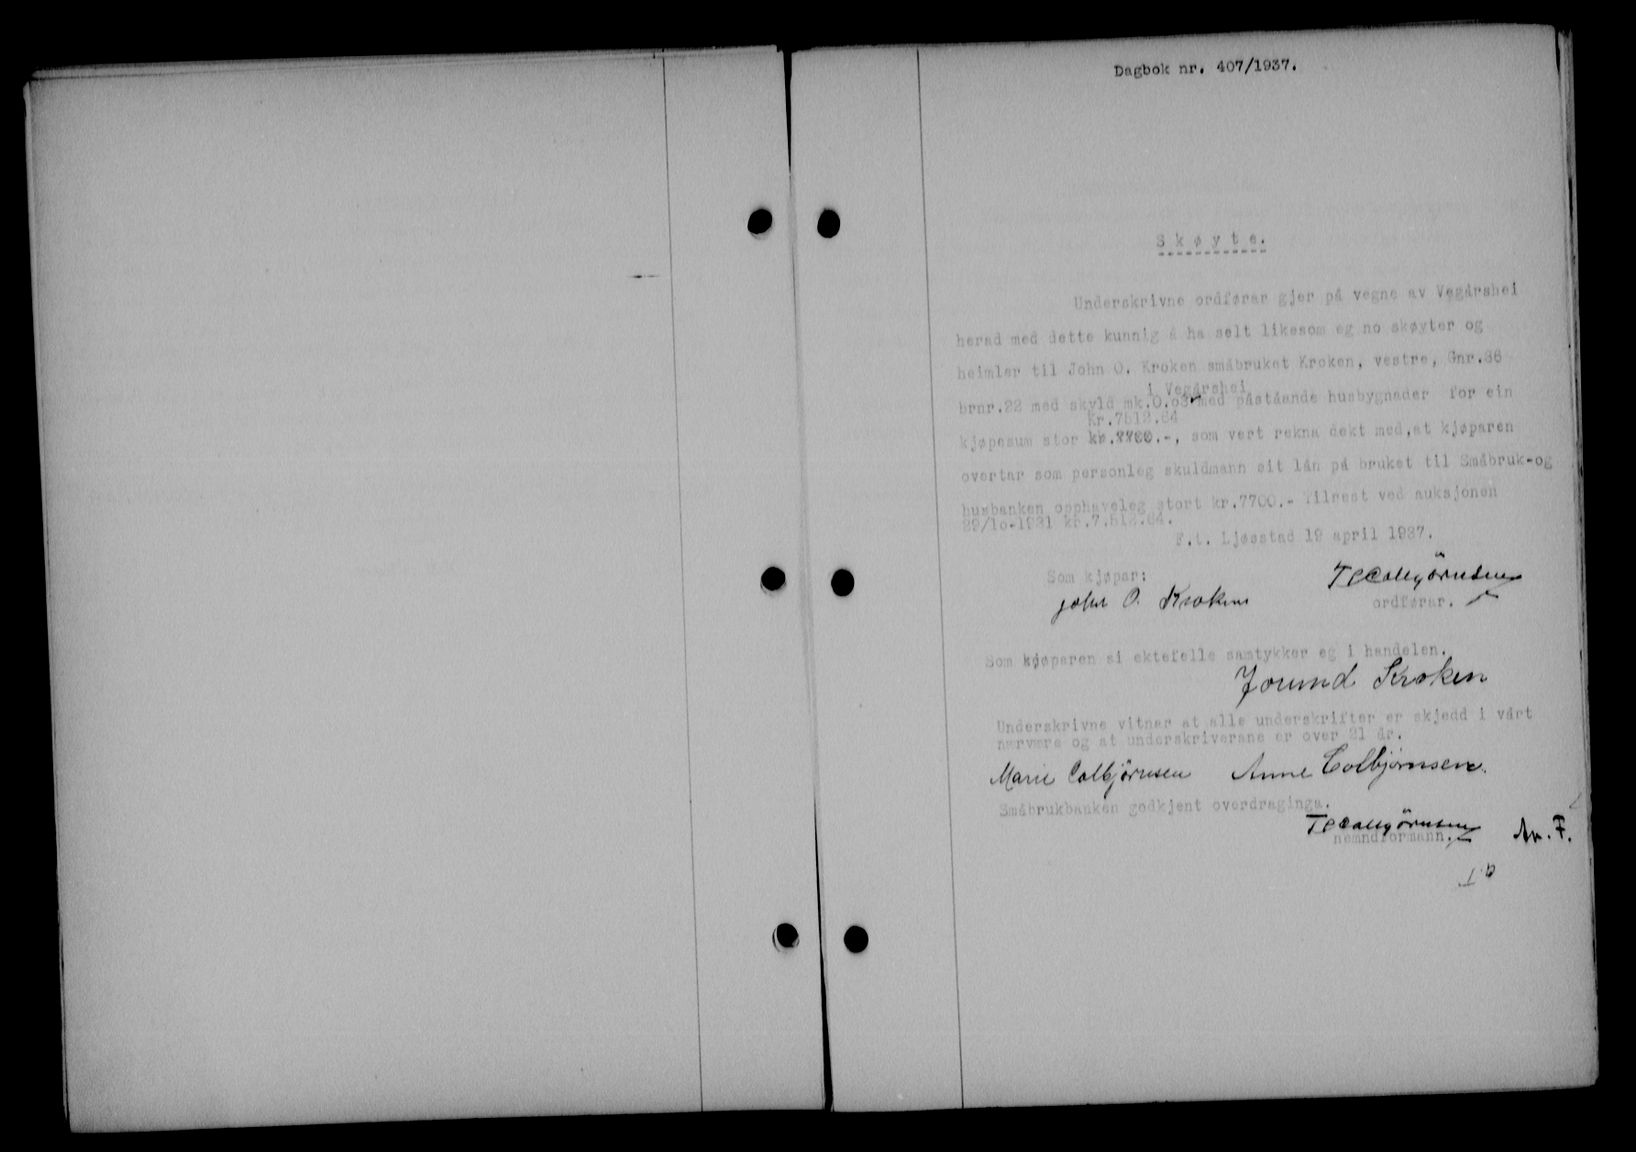 Dagbok nr. 407/1937.
Skøyte.
Underskrivne ordførar gjer på vegne av Vegårshei
herad med dette kunnig å ha selt likesom eg no skøyter og
heimler til John O. Kroken småbruket Kroken, vestre, Gnr.36
i Vegårshei
brnr.22 med skyld mk.0.03 med påståande husbygnader for ein
kr.7512.64
kjøpesum stor kr.7700.-, som vert rekna dekt med,at kjøparen
overtar som personleg skuldmann sit lån på bruket til Småbruk-og
husbanken opphaveleg stort kr.7700.- Tilrest ved auksjonen
29/10-1931 kr.7.512.64.
F.t. Ljøsstad 19 april 1937.
Som kjøpar:
John O. Kroken
T Colbjörnsen
ordførar.
Som kjøparen si ektefelle samtykker eg i handelen.
Jorund Kroken
Underskrivne vitner at alle underskrifter er skjedd i vårt
nærvære og at underskriverane er over 21 år.
Marie Colbjörnsen Anne Colbjørnsen.
Småbrukbanken godkjent overdraginga.
T Colbjörnsen
nemndformann.